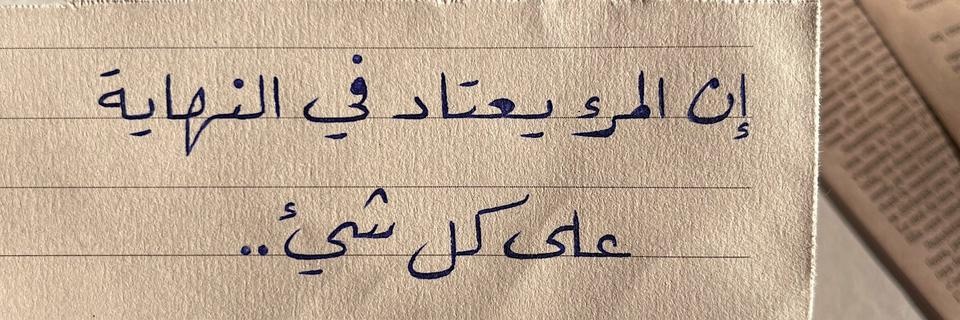 إن المرء يعتاد في النهاية
على كل شيئ..